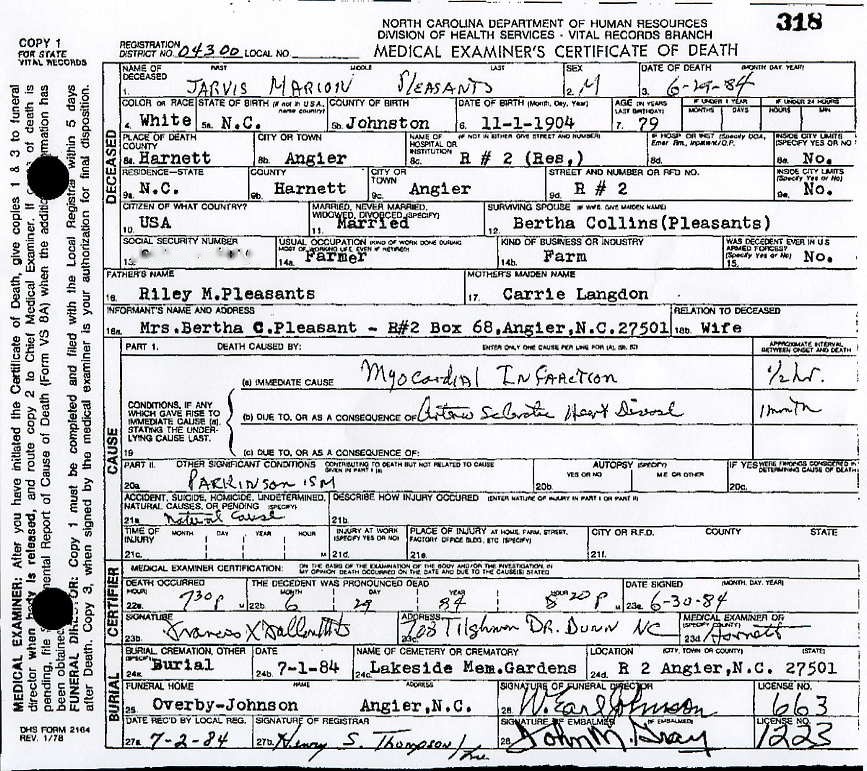 318
COPY 1
FOR STATE
VITAL RECORDS
NORTH CAROLINA DEPARTMENT OF HUMAN RESOURCES
DIVISION OF HEALTH SERVICES - VITAL RECORDS BRANCH
MEDICAL EXAMINER'S CERTIFICATE OF DEATH
REGISTRATION
DISTRICT NO. 04300 LOCAL NO.
MEDICAL EXAMINER: After you have initiated the Certificate of Death, give copies 1 & 3 to funeral
director when body is released, and route copy 2 to Chief Medical Examiner. If of death is
pending, file mental Report of Cause of Death (Form VS 8A) when the addition mation has
been obtained
FUNERAL DIRECTOR: Copy 1 must be completed and filed with the Local Registrar within 5 days
after Death. Copy 3, when signed by the medical examiner is your authorization for final disposition.
DECEASED
NAME OF DECEASED FIRST MIDDLE LAST SEX DATE OF DEATH (MONTH, DAY, YEAR)
1. JARVIS MARION PLEASANTS 2. M 3. 6-29-84
COLOR OR RACE STATE OF BIRTH (If not in U.S.A., name country) COUNTY OF BIRTH DATE OF BIRTH (Month, Day, Year) AGE (IN YEARS LAST BIRTHDAY) IF UNDER 1 YEAR MONTHS DAYS IF UNDER 24 HOURS HOURS MIN
4. White 5a. N.C. 5b. Johnston 6. 11-1-1904 7. 79
PLACE OF DEATH COUNTY CITY OR TOWN NAME OF HOSPITAL OR INSTITUTION (IF NOT IN EITHER, GIVE STREET AND NUMBER) IF HOSP. OR INST. (Specify DOA, Emer. Rm., Inpatient/O.P. INSIDE CITY LIMITS (SPECIFY YES OR NO)
8a. Harnett 8b. Angier 8c. R # 2 (Res,) 8d. 8e. No.
RESIDENCE-STATE COUNTY CITY OR TOWN STREET AND NUMBER OR RFD NO. INSIDE CITY LIMITS (Specify Yes or No)
9a. N.C. 9b. Harnett 9c. Angier 9d. R # 2 9e. No.
CITIZEN OF WHAT COUNTRY? MARRIED, NEVER MARRIED, WIDOWED, DIVORCED (SPECIFY) SURVIVING SPOUSE (IF WIFE, GIVE MAIDEN NAME)
10. USA 11. Married 12. Bertha Collins(Pleasants)
SOCIAL SECURITY NUMBER USUAL OCCUPATION (KIND OF WORK DONE DURING MOST OF WORKING LIFE, EVEN IF RETIRED) KIND OF BUSINESS OR INDUSTRY WAS DECEDENT EVER IN U.S. ARMED FORCES? (Specify Yes or No)
13. 14a. Farmer 14b. Farm 15. No.
FATHER'S NAME MOTHER'S MAIDEN NAME
16. Riley M.Pleasants 17. Carrie Langdon
INFORMANT'S NAME AND ADDRESS RELATION TO DECEASED
18a. Mrs.Bertha C.Pleasant - R#2 Box 68,Angier,N.C.27501 18b. Wife
CAUSE
PART 1. DEATH CAUSED BY: ENTER ONLY ONE CAUSE PER LINE FOR (A), (B), (C) APPROXIMATE INTERVAL BETWEEN ONSET AND DEATH
(a) IMMEDIATE CAUSE Myocardial Infarction 1/2 hr.
CONDITIONS, IF ANY
WHICH GAVE RISE TO
IMMEDIATE CAUSE (a),
STATING THE UNDER-
LYING CAUSE LAST.
(b) DUE TO, OR AS A CONSEQUENCE OF Arterio Sclerotic Heart Disease 1 month
19 (c) DUE TO, OR AS A CONSEQUENCE OF:
PART II. OTHER SIGNIFICANT CONDITIONS CONTRIBUTING TO DEATH BUT NOT RELATED TO CAUSE GIVEN IN PART I (a) AUTOPSY (SPECIFY) YES OR NO M.E. OR OTHER IF YES WERE FINDINGS CONSIDERED IN DETERMINING CAUSE OF DEATH
20a. PARKINSON ISM 20b. 20c.
ACCIDENT, SUICIDE, HOMICIDE, UNDETERMINED, NATURAL CAUSES, OR PENDING (SPECIFY) DESCRIBE HOW INJURY OCCURED (ENTER NATURE OF INJURY IN PART I OR PART II)
21a. Natural Cause 21b.
TIME OF INJURY MONTH DAY YEAR HOUR INJURY AT WORK (SPECIFY YES OR NO) PLACE OF INJURY AT HOME, FARM, STREET, FACTORY, OFFICE BLDG., ETC. (SPECIFY) CITY OR R.F.D. COUNTY STATE
21c. M 21d. 21e. 21f.
CERTIFIER
MEDICAL EXAMINER CERTIFICATION: ON THE BASIS OF THE EXAMINATION OF THE BODY AND/OR THE INVESTIGATION, IN MY OPINION DEATH OCCURRED ON THE DATE AND DUE TO THE CAUSE(S) STATED
DEATH OCCURRED HOUR THE DECEDENT WAS PRONOUNCED DEAD MONTH DAY YEAR HOUR DATE SIGNED (MONTH, DAY, YEAR)
22a. 730P M 22b. 6 29 84 820P M 23a. 6-30-84
SIGNATURE ADDRESS MEDICAL EXAMINER OF (SPECIFY COUNTY)
23b. Francis X 23c. 708 Tilghman DR. DUNN NC 23d. Harnett
BURIAL
BURIAL, CREMATION, OTHER (SPECIFY) DATE NAME OF CEMETERY OR CREMATORY LOCATION (CITY, TOWN OR COUNTY) (STATE)
24a. Burial 24b. 7-1-84 24c. Lakeside Mem.Gardens 24d. R 2 Angier,N.C. 27501
FUNERAL HOME NAME ADDRESS SIGNATURE OF FUNERAL DIRECTOR LICENSE NO.
25. Overby-Johnson Angier,N.C. 26. W. Earl Johnson 663
DATE REC'D BY LOCAL REG. SIGNATURE OF REGISTRAR SIGNATURE OF EMBALMER (IF EMBALMED) LICENSE NO.
27a. 7-2-84 27b. Henry S. Thompson 28. John M. Gray 1223
DHS FORM 2164
REV. 1/78